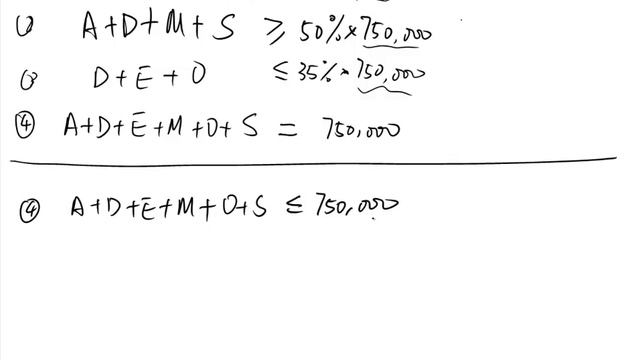 (1) A+D+M+S ≥ 50%×750,000
(3) D+E+O ≤ 35%×750,000
④ A+D+E+M+O+S = 750,000
④ A+D+E+M+O+S ≤ 750,000